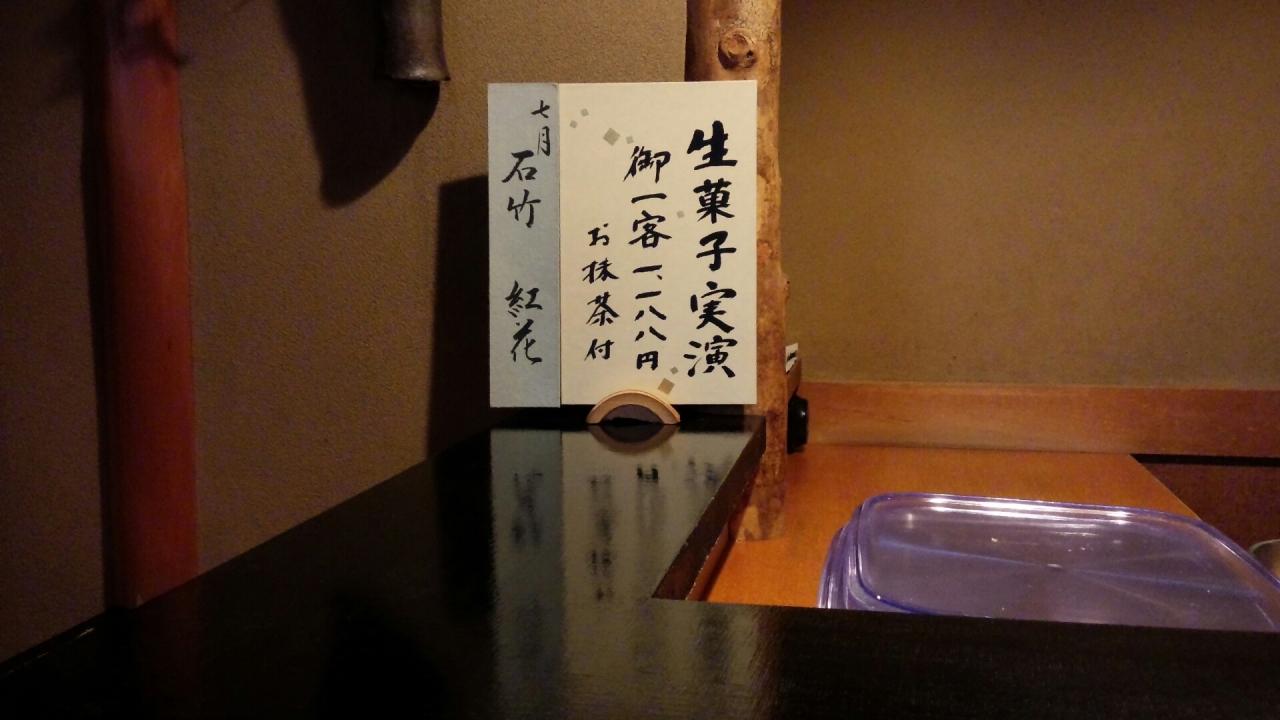 生菓子実演
御一客一、一八八円
お抹茶付
七月
石竹 紅花